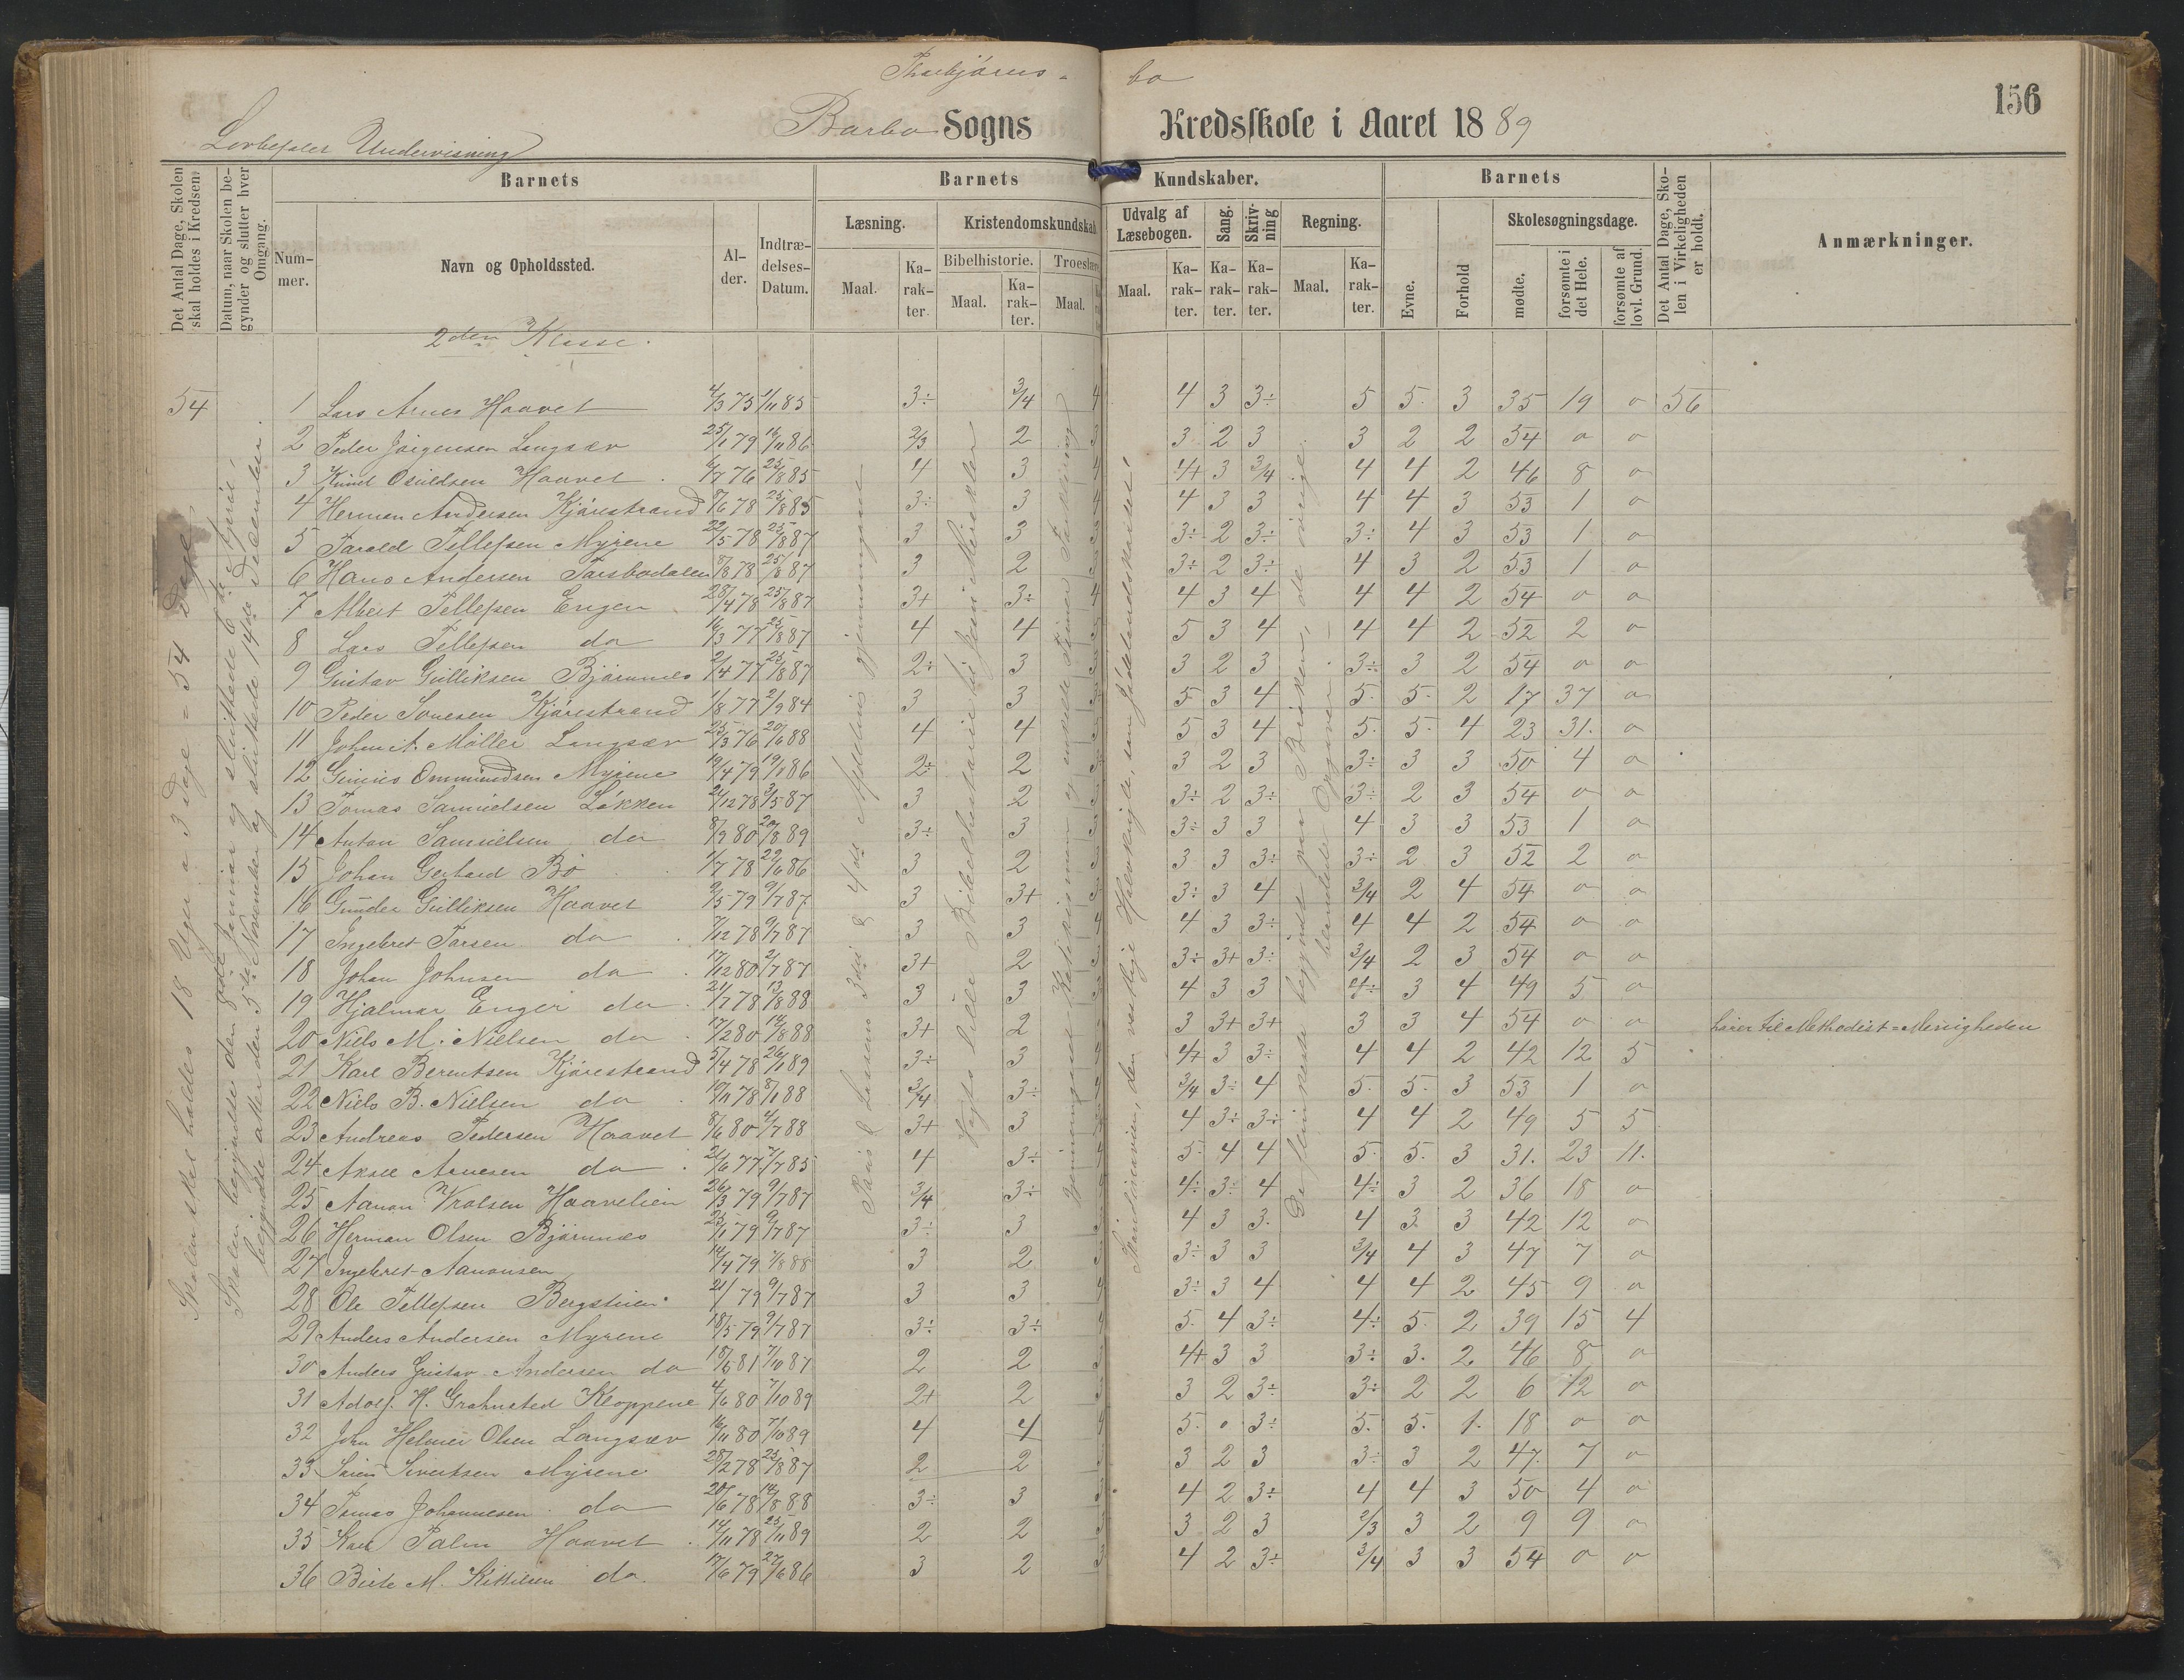 Thorbjørns-bo
Barbo Sogns Kredsskole i Aaret 1889
156
Lovbefalet Undervisning
Det Antal Dage, Skolen skal holdes i Kredsen.
Datum, naar Skolen begynder og slutter hver Omgang.
Barnets
Nummer.
Navn og Opholdssted.
Alder.
Indtrædelses-Datum.
Barnets Kundskaber.
Læsning.
Maal.
Karakter.
Kristendomskundskab
Bibelhistorie.
Maal.
Karakter.
Troeslære
Maal.
Udvalg af Læsebogen.
Maal.
Karakter.
Sang.
Karakter.
Skrivning
Karakter.
Regning.
Maal.
Karakter.
Barnets
Evne.
Forhold
Skolesøgningsdage.
mødte.
forsømte i det Hele.
forsømte af lovl. Grund.
Det Antal Dage, Skolen i Virkeligheden er holdt.
Anmærkninger.
2den Klasse.
54 1 Lars Arnes Haavet 4/3 75 1/11 85 3÷ 3/4 4 4 3 3÷ 5 5 3 35 19 0 56
2 Peder Jørgensen Langsæv 25/1 79 16/11 86 2/3 2 3 3 2 3 3 2 2 54 0 0
3 Knut Osuldsen Haavet 6/7 76 25/8 85 4 3 4 4+ 3 3/4 4 4 2 46 8 0
4 Herman Andersen Kjørestrand 9/6 78 25/8 85 3÷ 3 4 4 3 3 4 4 3 53 1 0
5 Tarald Tellefsen Myrene 22/5 78 25/8 87 3 3 3 3÷ 2 3÷ 3÷ 4 3 53 1 0
6 Hans Andersen Torsbodalen 8/8 78 25/8 87 3 2 3 3÷ 2 3÷ 4 3 2 53 1 0
7 Albert Tellefsen Engen 28/4 78 25/8 87 3+ 3÷ 4 4 3 4 4 4 2 54 0 0
8 Lars Tellefsen do 16/3 77 25/8 87 4 4 5 3 4 4 4 2 52 2 0
9 Gustav Gulliksen Bjørnnes 2/4 77 25/8 87 2÷ 3 3 3 2 3 3÷ 3 2 54 0 0
10 Peder Tonesen Kjørestrand 1/8 77 2/9 84 3 3 5 3 4 5 5 2 17 37 0
11 Johan A. Møller Langsæv 25/3 76 20/6 88 4 4 5 3 4 5 5 4 23 31 0
12 Ginius Ommundsen Myrene 19/4 79 19/1 86 2÷ 2 3 3 2 3 3÷ 3 3 50 4 0
13 Tomas Samuelsen Løkken 21/12 78 3/5 87 3 2 3 3÷ 2 3÷ 3÷ 2 3 54 0 0
14 Anton Samuelsen do 8/9 80 20/8 89 3÷ 3 3 3÷ 3 3 4 3 3 53 1 0
15 Johan Gerhard Bø 1/7 78 22/6 86 3 2 3 3 3 3÷ 3÷ 2 3 52 2 0
16 Gunder Gulliksen Haavet 9/5 79 9/7 87 3 3+ 3 3÷ 3 4 3/4 2 4 54 0 0
17 Ingebret Tarsen do 7/12 78 9/7 87 3 3 4 4 3 3÷ 4 4 2 54 0 0
18 Johan Johnsen do 17/12 80 2/7 87 3+ 2 3 3÷ 3+ 3÷ 3/4 2 3 54 0 0
19 Hjalmar Enger do 21/7 78 13/8 88 3 3 3 4 3 3 4÷ 3 4 49 5 0
20 Niels M. Nielsen do 17/2 80 14/8 88 3+ 2 3 3+ 3+ 3 3 4 54 0 0 hører til Methodist-Menigheden
21 Karl Berentsen Kjørestrand 5/4 78 26/1 89 3÷ 3 4+ 3 3÷ 4 4 2 42 12 5
22 Niels B. Nielsen do 10/11 78 8/1 88 3/4 3÷ 4 3/4 3÷ 4 5 5 3 53 1 0
23 Andreas Pedersen Haavet 8/6 80 4/7 88 3+ 3 4 3÷ 3÷ 4 4 2 49 5 5
24 Aksel Arnesen do 21/6 77 7/7 85 4 3÷ 5 4 4 5 5 3 31 23 11
25 Aanon Vrolsen Haavelien 26/3 79 9/7 87 3/4 3÷ 4÷ 3÷ 4 4÷ 3 2 36 18 0
26 Herman Olsen Bjørnnes 25/1 79 9/7 87 3÷ 3 4 3 3 4 3 3 42 12 0
27 Ingebret Aanonsen 14/4 79 7/8 88 3 2 3÷ 3 3 3/4 4 3 47 7 0
28 Ole Tellefsen Bergstuen 21/ 79 9/7 87 3 3 4 3÷ 3 4 4 4 2 45 9 0
29 Anders Andersen Myrene 18/5 79 9/7 87 3÷ 3÷ 4 5 4 3÷ 4÷ 5 2 39 15 4
30 Anders Gustav Andersen do 18/5 81 7/10 87 2 2 3 4+ 3 3 3÷ 3 2 46 8 0
31 Adolf H. Grahnsted Kloppene 4/6 80 7/10 89 2+ 2 3 3 2 3÷ 3÷ 2 2 6 12 0
32 John Helmer Olsen Langsæv 16/11 80 7/10 89 4 4 4 5 0 3÷ 5 5 1 18 0 0
33 Søren Sivertsen Myrene 28/2 78 25/8 87 2 2 3 3 2 3 3÷ 3 2 47 7 0
34 Tomas Johannesen do 20/6 78 14/8 88 3÷ 3 3 4 2 3÷ 4 4 3 50 4 0
35 Karl Palm Haavet 14/11 78 25/11 89 2 2 3 3 2 3 2/3 3 2 9 9 0
36 Birte M. Kittilsen do. 17/6 79 27/6 86 3 2 3 4 2 3÷ 3/4 3 3 54 0 0
Skolen skal holdes 18 Uger a 3 Dage = 54 Dage
Skolen begyndte den Januar og sluttede 6te April,
begyndte atter den 5te November og sluttede 14de December.
Paus & Lassens 3die & 4de Afdeling gjennemgaaet
Vogts lille Bibelhistorie til Jesu Mirakler
Skandinavien, den vestlige Halvkugle, samt Jødelandskartet.
De flinkeste begyndt paa Brøken, de øvrige
blandede Opgaver